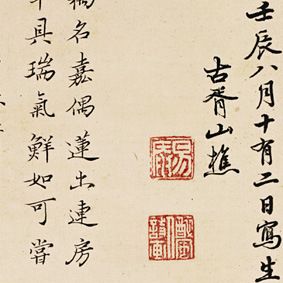 壬辰八月十有二日寫生
古胥山樵
名嘉偶蓮出連房
具瑞氣鮮如可嘗